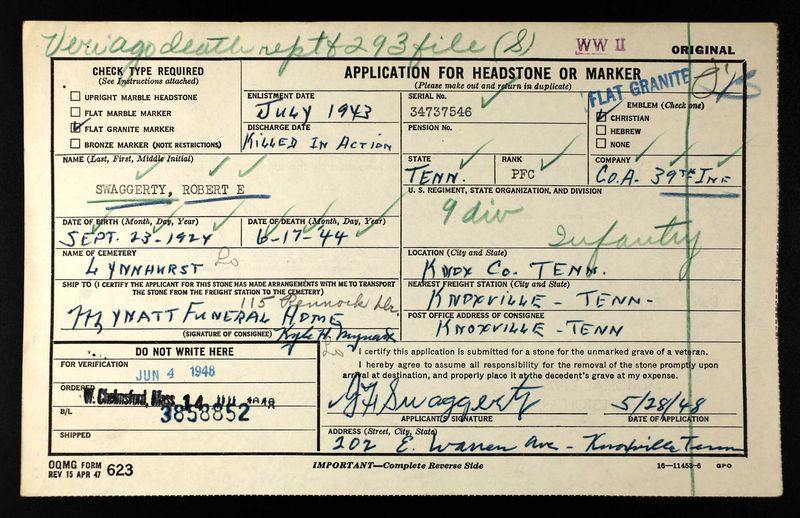 Veri ago death rept & 293 file (S)
WW II
ORIGINAL
CHECK TYPE REQUIRED
(See Instructions attached)
UPRIGHT MARBLE HEADSTONE
FLAT MARBLE MARKER
FLAT GRANITE MARKER
BRONZE MARKER (NOTE RESTRICTIONS)
APPLICATION FOR HEADSTONE OR MARKER
(Please make out and return in duplicate)
ENLISTMENT DATE
JULY 1943
DISCHARGE DATE
KILLED IN ACTION
SERIAL No.
34737546
PENSION No.
FLAT GRANITE
EMBLEM (Check one)
CHRISTIAN
HEBREW
NONE
NAME (Last, First, Middle Initial)
SWAGGERTY, ROBERT E
STATE
TENN.
RANK
PFC
COMPANY
CO.A. 39TH INF
U. S. REGIMENT, STATE ORGANIZATION, AND DIVISION
9 div
Infantry
DATE OF BIRTH (Month, Day, Year)
SEPT. 23-1924
DATE OF DEATH (Month, Day, Year)
6-17-44
NAME OF CEMETERY
LYNNHURST
LOCATION (City and State)
KNOX CO. TENN.
SHIP TO (I CERTIFY THE APPLICANT FOR THIS STONE HAS MADE ARRANGEMENTS WITH ME TO TRANSPORT
THE STONE FROM THE FREIGHT STATION TO THE CEMETERY)
115 Dr.
MYNATT FUNERAL HOME
(SIGNATURE OF CONSIGNEE) Kyle H. Mynatt
NEAREST FREIGHT STATION (City and State)
KNOXVILLE - TENN-
POST OFFICE ADDRESS OF CONSIGNEE
KNOXVILLE - TENN
DO NOT WRITE HERE
FOR VERIFICATION
JUN 4 1948
ORDERED
W. Chelmsford, Mass. 14 1948
B/L
3858852
SHIPPED
I certify this application is submitted for a stone for the unmarked grave of a veteran.
I hereby agree to assume all responsibility for the removal of the stone promptly upon
arrival at destination, and properly place it at the decedent's grave at my expense.
Swaggerty 5/28/48
APPLICANT'S SIGNATURE DATE OF APPLICATION
ADDRESS (Street, City, State)
202 E. Warren Ave - Knoxville Tenn
OQMG FORM
REV 15 APR 47 623
IMPORTANT—Complete Reverse Side
16-11453-6 GPO